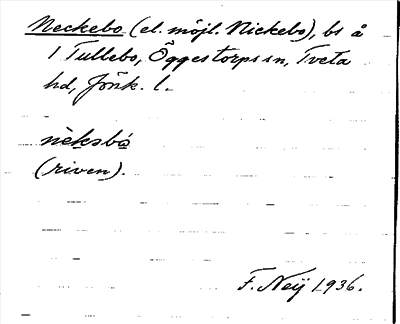 Neckebo (el. möjl. Nickebo), bs å
1 Tullebo, Öggestorps sn, Tveta
hd, Jönk. l.
nèksbó
(riven).
F. Neij 1936.